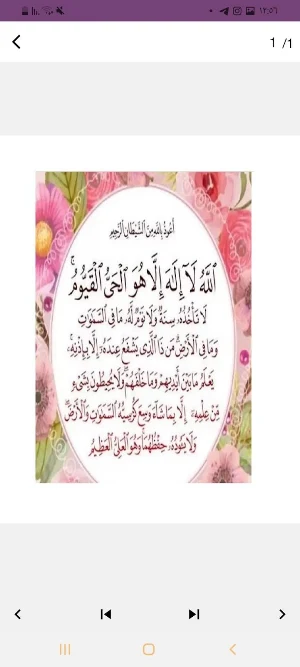 ١٢:٥٦
1 /1
أَعُوذُ بِاللَّهِ مِنَ الشَّيْطَانِ الرَّجِيمِ
ٱللَّهُ لَآ إِلَٰهَ إِلَّا هُوَ ٱلْحَىُّ ٱلْقَيُّومُ ۚ
لَا تَأْخُذُهُۥ سِنَةٌ وَلَا نَوْمٌ لَّهُۥ مَا فِى ٱلسَّمَٰوَٰتِ
وَمَا فِى ٱلْأَرْضِ مَن ذَا ٱلَّذِى يَشْفَعُ عِندَهُۥٓ إِلَّا بِإِذْنِهِۦ
يَعْلَمُ مَا بَيْنَ أَيْدِيهِمْ وَمَا خَلْفَهُمْ وَلَا يُحِيطُونَ بِشَىْءٍ
مِّنْ عِلْمِهِۦٓ إِلَّا بِمَا شَآءَ وَسِعَ كُرْسِيُّهُ ٱلسَّمَٰوَٰتِ وَٱلْأَرْضَ
وَلَا يَـُٔودُهُۥ حِفْظُهُمَا وَهُوَ ٱلْعَلِىُّ ٱلْعَظِيمُ